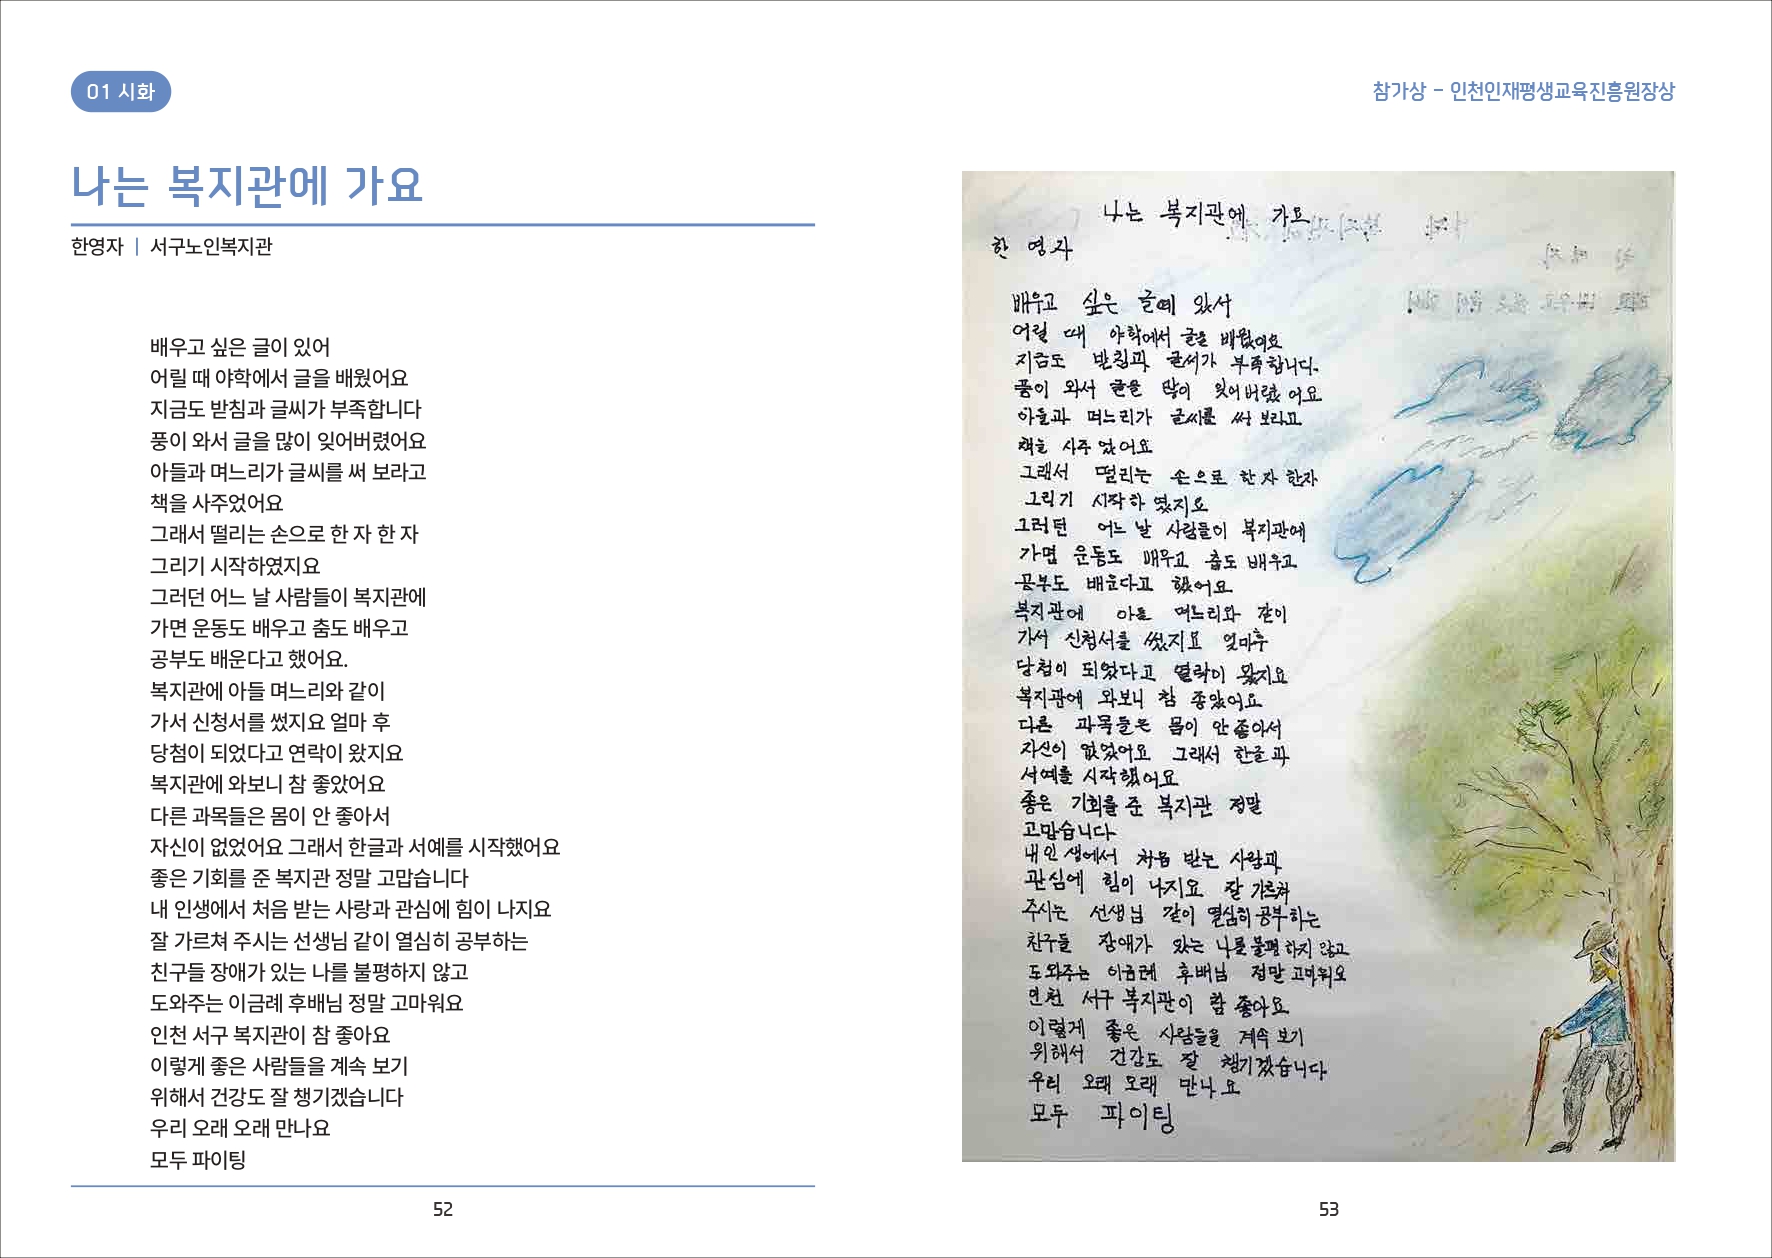 01 시화
나는 복지관에 가요
한영자 | 서구노인복지관
배우고 싶은 글이 있어
어릴 때 야학에서 글을 배웠어요
지금도 받침과 글씨가 부족합니다
풍이 와서 글을 많이 잊어버렸어요
아들과 며느리가 글씨를 써 보라고
책을 사주었어요
그래서 떨리는 손으로 한 자 한 자
그리기 시작하였지요
그러던 어느 날 사람들이 복지관에
가면 운동도 배우고 춤도 배우고
공부도 배운다고 했어요.
복지관에 아들 며느리와 같이
가서 신청서를 썼지요 얼마 후
당첨이 되었다고 연락이 왔지요
복지관에 와보니 참 좋았어요
다른 과목들은 몸이 안 좋아서
자신이 없었어요 그래서 한글과 서예를 시작했어요
좋은 기회를 준 복지관 정말 고맙습니다
내 인생에서 처음 받는 사랑과 관심에 힘이 나지요
잘 가르쳐 주시는 선생님 같이 열심히 공부하는
친구들 장애가 있는 나를 불평하지 않고
도와주는 이금례 후배님 정말 고마워요
인천 서구 복지관이 참 좋아요
이렇게 좋은 사람들을 계속 보기
위해서 건강도 잘 챙기겠습니다
우리 오래 오래 만나요
모두 파이팅
52
참가상 - 인천인재평생교육진흥원장상
나는 복지관에 가요
한 영자
배우고 싶은 글에 있서
어릴 때 야학에서 글을 배웠어요
지금도 받침과 글씨가 부족합니다.
풍이 와서 글을 많이 잊어버렸어요
아들과 며느리가 글씨를 써 보라고
책을 사주었어요
그래서 떨리는 손으로 한자 한자
그리기 시작하였지요
그러던 어느 날 사람들이 복지관에
가면 운동도 배우고 춤도 배우고
공부도 배운다고 했어요
복지관에 아들 며느리와 같이
가서 신청서를 썼지요 얼마후
당첨이 되었다고 열락이 왔지요
복지관에 와보니 참 좋았어요
다른 과목들은 몸이 안좋아서
자신이 없었어요 그래서 한글과
서예를 시작했어요
좋은 기회를 준 복지관 정말
고맙습니다
내인생에서 처음 받는 사랑과
관심에 힘이 나지요 잘 가르쳐
주시는 선생님 같이 열심히 공부하는
친구들 장애가 있는 나를 불평하지 않고
도와주는 이금례 후배님 정말 고마워요
인천 서구 복지관이 참 좋아요
이렇게 좋은 사람들을 계속 보기
위해서 건강도 잘 챙기겠습니다
우리 오래 오래 만나요
모두 파이팅
53